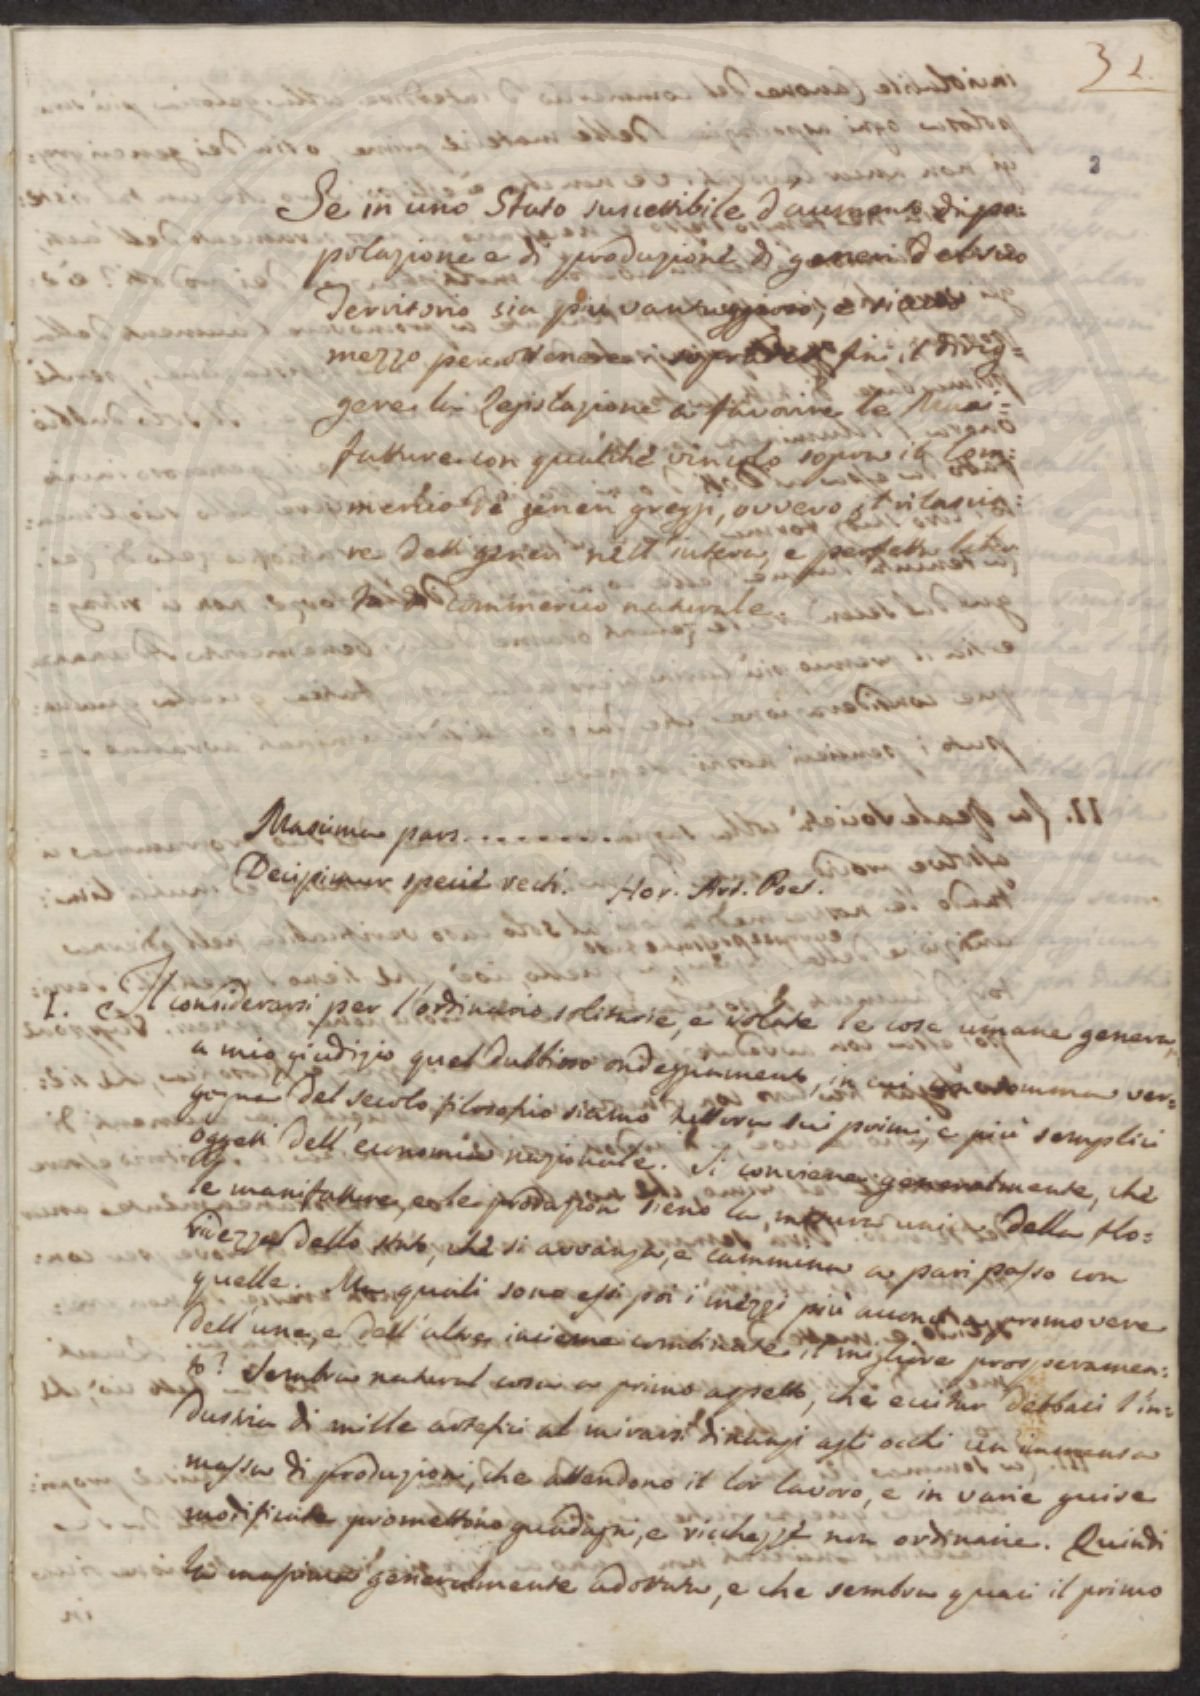 32.
2
Se in uno Stato suscettibile d'aumento di po=
polazione e di produzione di generi del suo
Territorio sia più vantaggioso, e sicuro
mezzo per ottenere i sopradetti fini il dirig=
gere la Legislazione a favorire le Mani=
fatture con qualche vincolo sopra il Com=
mercio de generi greggi, ovvero il rilascia=
re detti generi nell'intera, e perfetta liber
tà di commercio naturale.
Maxima pars............
Decipimur specie recti. Hor. Art. Poet.
I. Il considerarsi per l'ordinario solitarie, e isolate le cose umane genera
a mio giudizio quel dubbioso ondeggiamento, in cui con somma ver=
gogna del secolo filosofico siamo tuttora sui primi, e più semplici
oggetti dell'economia nazionale. Si conviene generalmente, che
le manifatture, e le produzioni sieno la misura unica della flo=
ridezza dello stato, che si avvanza, e cammina a pari passo con
quelle. Ma quali sono essi poi i mezzi più acconci a promovere
dell'une, e dell'altre insieme combinate il migliore prosperamen=
to? Sembra natural cosa a primo aspetto, che eccitar debbasi l'in=
dustria di mille artefici al mirarsi dinanzi agli occhi un'immensa
massa di produzioni, che attendono il lor lavoro, e in varie guise
modificate promettono guadagni, e ricchezze non ordinarie. Quindi
la massima generalmente adottata, e che sembra quasi il primo